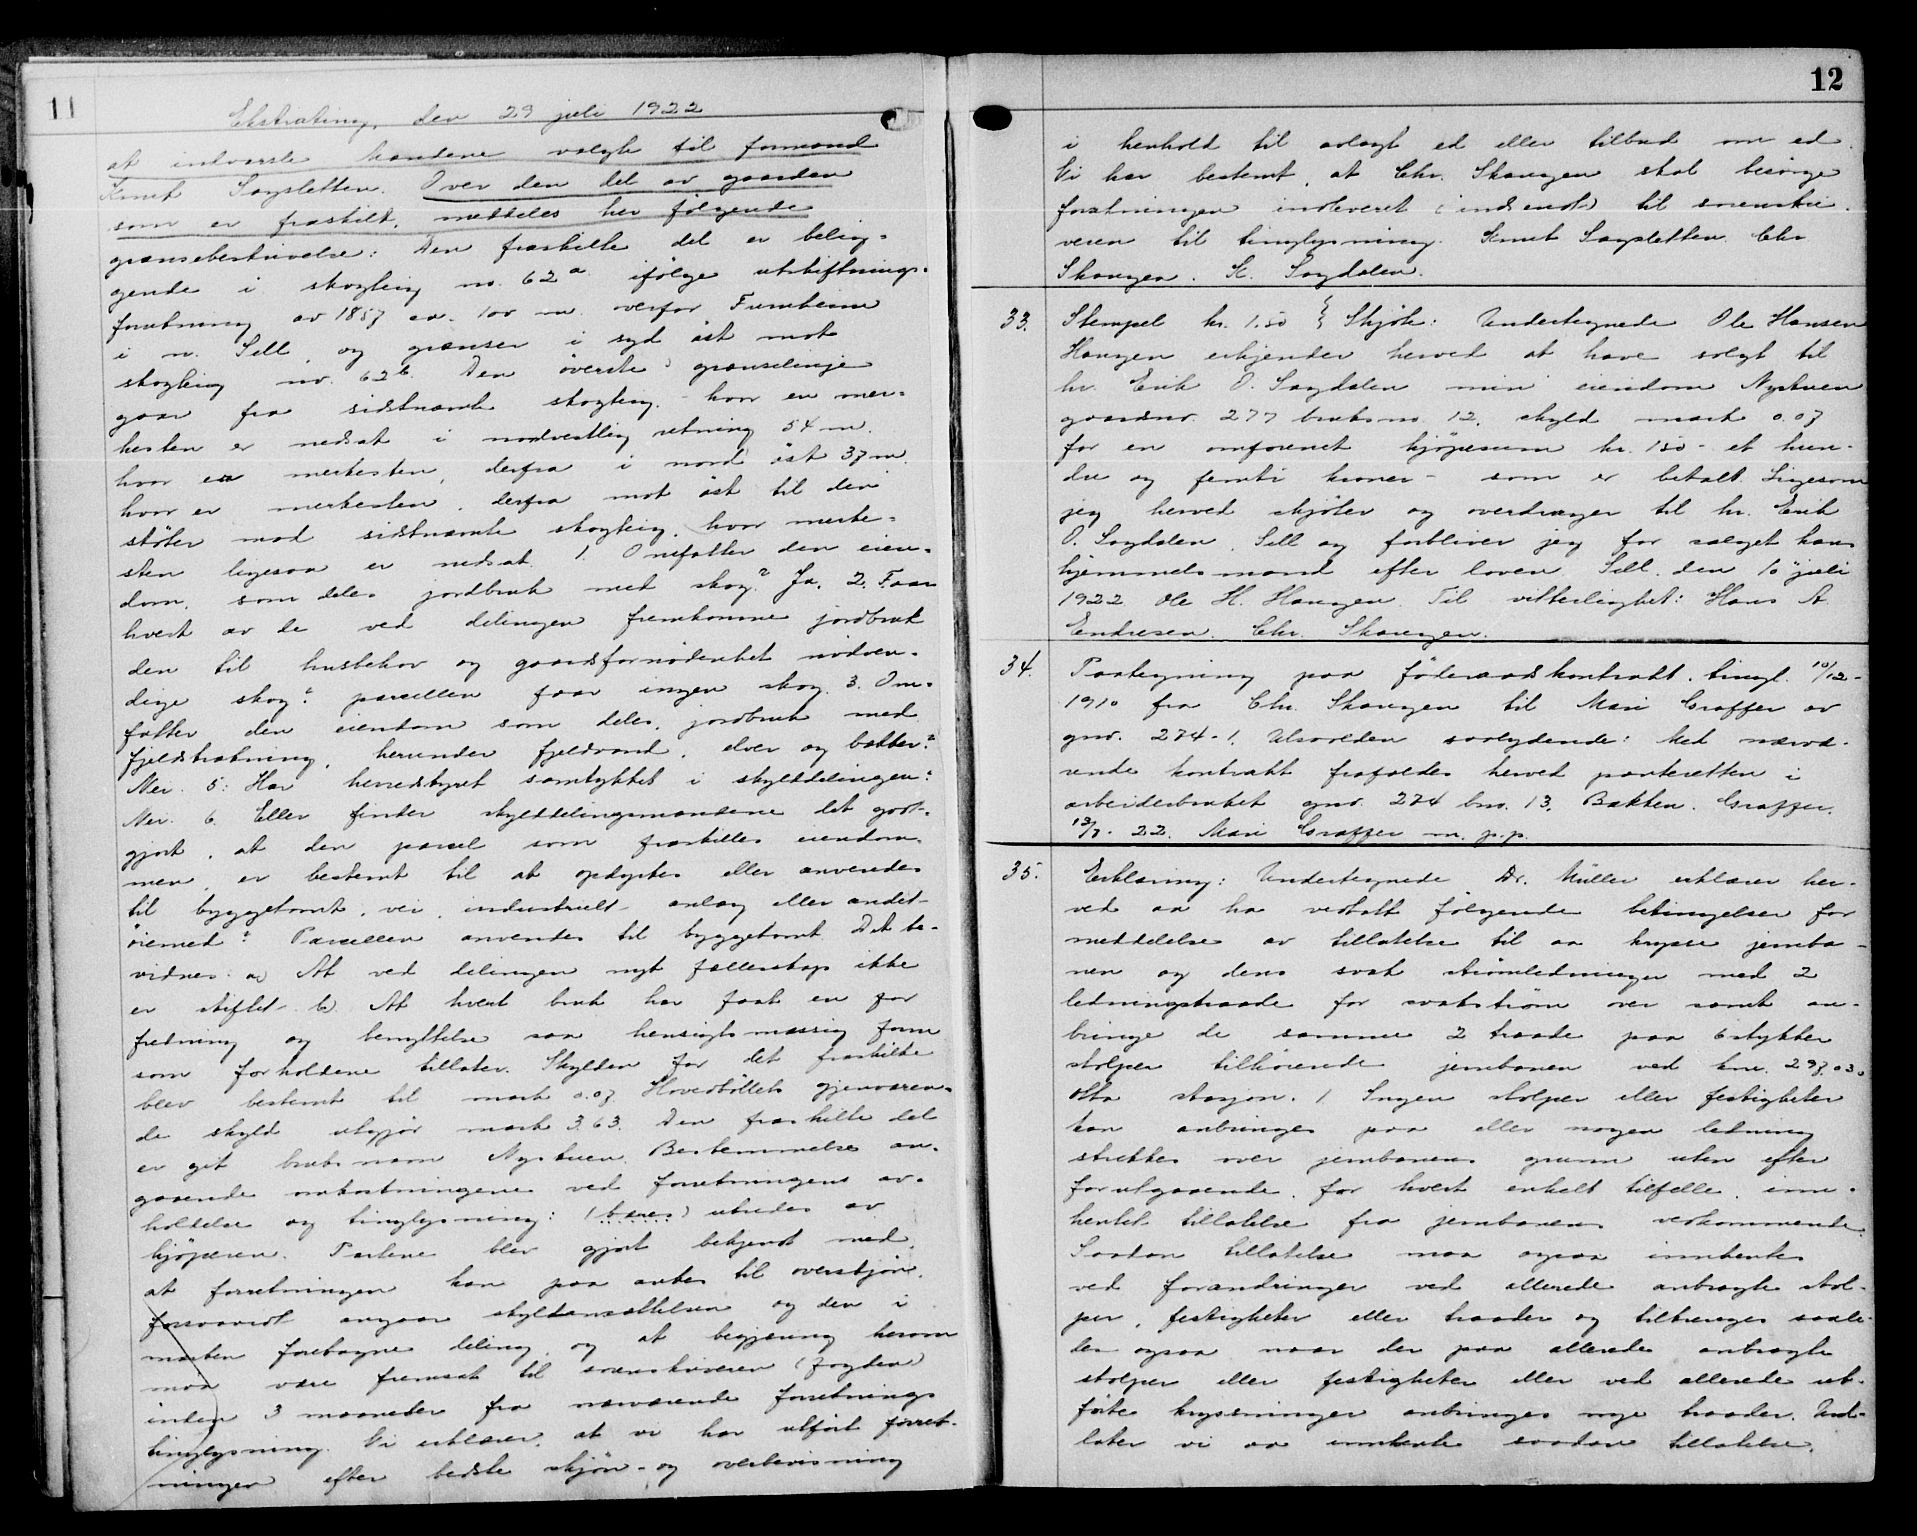 11
Ekstrating, den 29 juli 1922
at indvarsle mændene valgte til formand
Knut Sagsletten. Over den del av gaarden
som er fraskilt, meddeles her følgende
grænsebeskrivelse: Den fraskilte del er belig-
gende i skogteig no. 62 a ifølge utskiftnings-
forretning av 1857 ca. 100 m. ovenfor Furuheim
i n. Sell, og grænser i syd øst mot
skogteig no. 62 b. Den øverste grænselinje
gaar fra sidstnævnte skogteig - hvor en mer-
kesten er nedsat i nordvestlig retning 54 m.
hvor er merkesten, derfra i nord øst 37 m.
hvor er merkesten, derfra mot øst til den
støter mod sidstnævnte skogteig, hvor merke-
sten ligesaa er nedsat. 1. Omfatter den eien-
dom, som deles jordbruk med skog? Ja. 2. Faar
hvert av de ved delingen fremkomne jordbruk
den til husbehov og gaardsfornødenhet nødven-
dige skog? parcellen faar ingen skog. 3. Om-
fatter den eiendom som deles, jordbruk med
fjeldstrækning, herunder fjeldvand, elver og bækker?
Nei. 5: Har herredstyret samtykket i skylddelingen?
Nei. 6. Eller finder skylddelingsmændene det godt-
gjort, at den parcel som fraskilles eiendom-
men, er bestemt til at opdyrkes eller anvendes
til byggetomt, vei, industrielt anlæg eller andet
øiemed? Parcellen anvendes til byggetomt. Det be-
vidnes: a) At ved delingen nyt fællesskap ikke
er stiftet. b) At hvert bruk har faat en for
fredning og benyttelse saa hensigtsmæssig form
som forholdene tillater. Skylden for det fraskilte
blev bestemt til mark 0.07. Hovedbøllets gjenværen-
de skyld utgjør mark 3.63. Den fraskilte del
er git bruksnavn Nystuen. Bestemmelse an-
gaaende omkostningene ved forretningens av-
holdelse og tinglysning: (bæres) utredes av
kjøperen. Partene blev gjort bekjendt med,
at forretningen kan paa ankes til overskjøn,
forsaavidt angaar skyldansættelsen og den i
marken foretagne deling, og at begjæring herom
maa være fremsat til sorenskriveren (fogden)
inden 3 maaneder fra nærværende forretnings
tinglysning. Vi erklærer, at vi har utført forret-
ningen efter bedste skjøn og overbevisning
12
i henhold til avlagt ed eller tilbud om ed.
Vi har bestemt, at Chr. Skaugen skal besørge
forretningen indleveret (indsendt) til sorenskri-
veren til tinglysning. Knut Sagsletten. Chr.
Skaugen. K. Sagdalen.
33. Stempel kr. 1.50 } Skjøte: Undertegnede Ole Hansen
Haugen erkjender herved at have solgt til
hr. Erik O. Sagdalen min eiendom Nystuen
gaardsnr. 277 bruksno. 12, skyld mark 0.07
for en omforenet kjøpesum kr. 150 - et hun-
dre og femti kroner - som er betalt. Ligesom
jeg herved skjøter og overdrager til hr. Erik
O. Sagdalen, Sell og forbliver jeg for salget hans
hjemmelsmand efter loven. Sell, den 10 juli
1922 Ole H. Haugen. Til vitterlighet: Hans A.
Endresen. Chr. Skaugen.
34. Paategning paa føderaadskontrakt, tingl. 10/12-
1910 fra Chr. Skaugen til Mari Graffer av
gnr. 274-1, Ulsvolden saalydende: Med nærvæ-
rende kontrakt frafaldes herved panteretten i
arbeiderbruket gnr. 274 bnr. 13, Bakken. Graffer,
13/7-22. Mari Graffer m. p. p.
35. Erklæring: Undertegnede Dr. Müller erklærer her-
ved aa ha vedtatt følgende betingelser for
meddelelse av tillatelse til aa krysse jernba-
nen og dens svak strømledninger med 2
ledningstraade for svakstrøm over samt an-
bringe de samme 2 traade paa 6 stykker
stolper tilhørende jernbanen ved km. 297.030
Otta stasjon. 1 Ingen stolper eller festigheter
kan anbringes paa eller nogen ledning
strekkes over jernbanens grunn uten efter
forutgaaende, for hvert enkelt tilfelle, inn-
hentet tillatelse fra jernbanens vedkommende.
Saadan tillatelse maa ogsaa innhentes
ved forandringer ved allerede anbragte stol-
per, festigheter eller traader og tiltrenges saale-
des ogsaa naar der paa allerede anbragte
stolper eller festigheter eller ved allerede ut-
førte krysninger anbringes nye traader. Und-
later vi aa innhente saadan tillatelse,